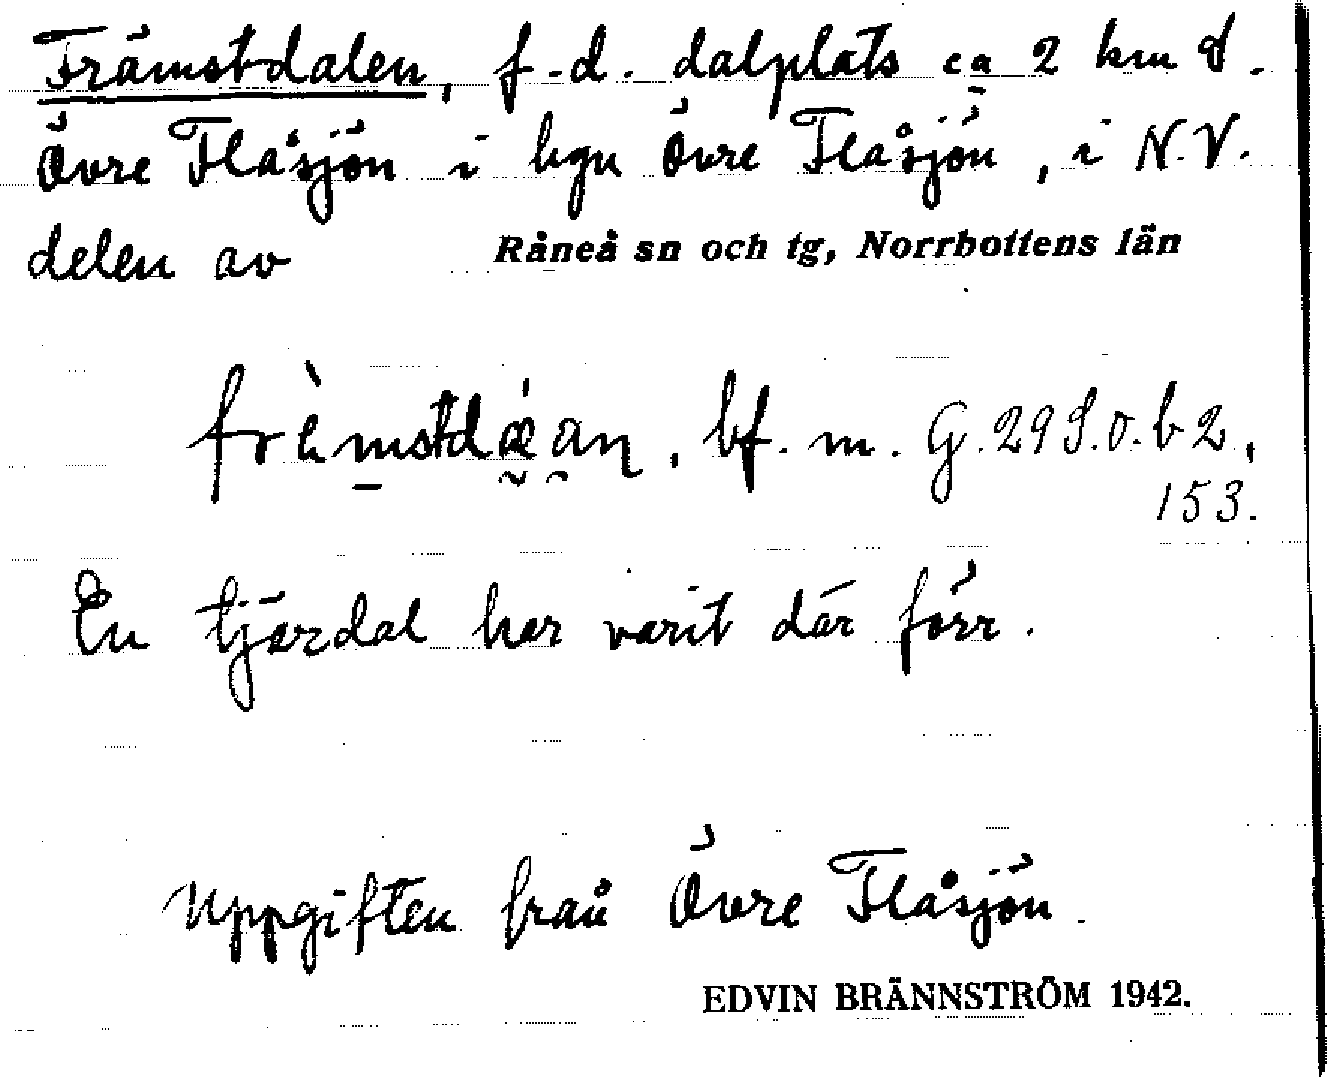 Främstdalen, f.d. dalplats ca 2 km S.
Övre Flåsjön i byn Övre Flåsjön, i N.V.
delen av Råneå sn och tg, Norrbottens län
bf. m.
153.
En tjärdal har varit där förr.
Uppgiften från Övre Flåsjön.
EDVIN BRÄNNSTRÖM 1942.